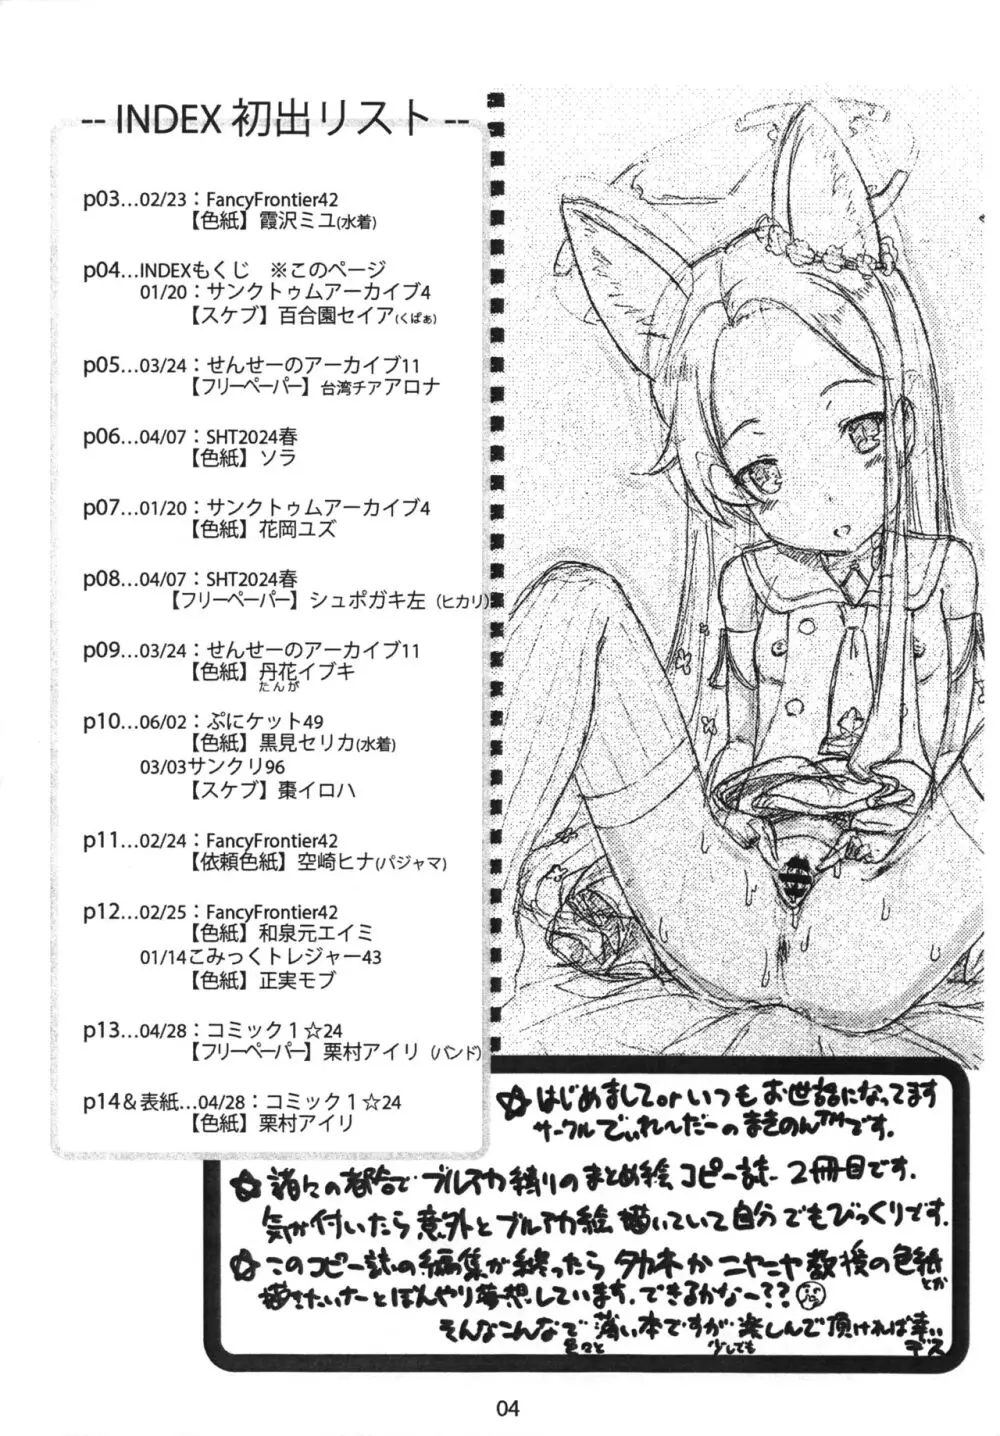 -- INDEX 初出リスト --
p03…02/23：FancyFrontier42
【色紙】霞沢ミユ(水着)
p04…INDEXもくじ　※このページ
01/20：サンクトゥムアーカイブ4
【スケブ】百合園セイア(くぱぁ)
p05…03/24：せんせーのアーカイブ11
【フリーペーパー】台湾チアアロナ
p06…04/07：SHT2024春
【色紙】ソラ
p07…01/20：サンクトゥムアーカイブ4
【色紙】花岡ユズ
p08…04/07：SHT2024春
【フリーペーパー】シュポガキ左（ヒカリ）
p09…03/24：せんせーのアーカイブ11
【色紙】丹花イブキ
たんが
p10…06/02：ぷにケット49
【色紙】黒見セリカ(水着)
03/03サンクリ96
【スケブ】棗イロハ
p11…02/24：FancyFrontier42
【依頼色紙】空崎ヒナ(パジャマ)
p12…02/25：FancyFrontier42
【色紙】和泉元エイミ
01/14こみっくトレジャー43
【色紙】正実モブ
p13…04/28：コミック１☆24
【フリーペーパー】栗村アイリ（バンド）
p14＆表紙…04/28：コミック１☆24
【色紙】栗村アイリ
☆はじめましてorいつもお世話になってます
サークルでぃれ〜だーのまきのん™です。
☆諸々の都合でブルアカ縛りのまとめ絵コピー誌2冊目です。
気が付いたら意外とブルアカ絵描いていて自分でもびっくりです。
☆このコピー誌の編集が終ったらタカネかニヤニヤ教授の色紙とか
描きたいなーとぼんやり夢想しています。できるかなー??
そんなこんなで薄い本ですが楽しんで頂ければ幸い
色々と 少しでも デス
04